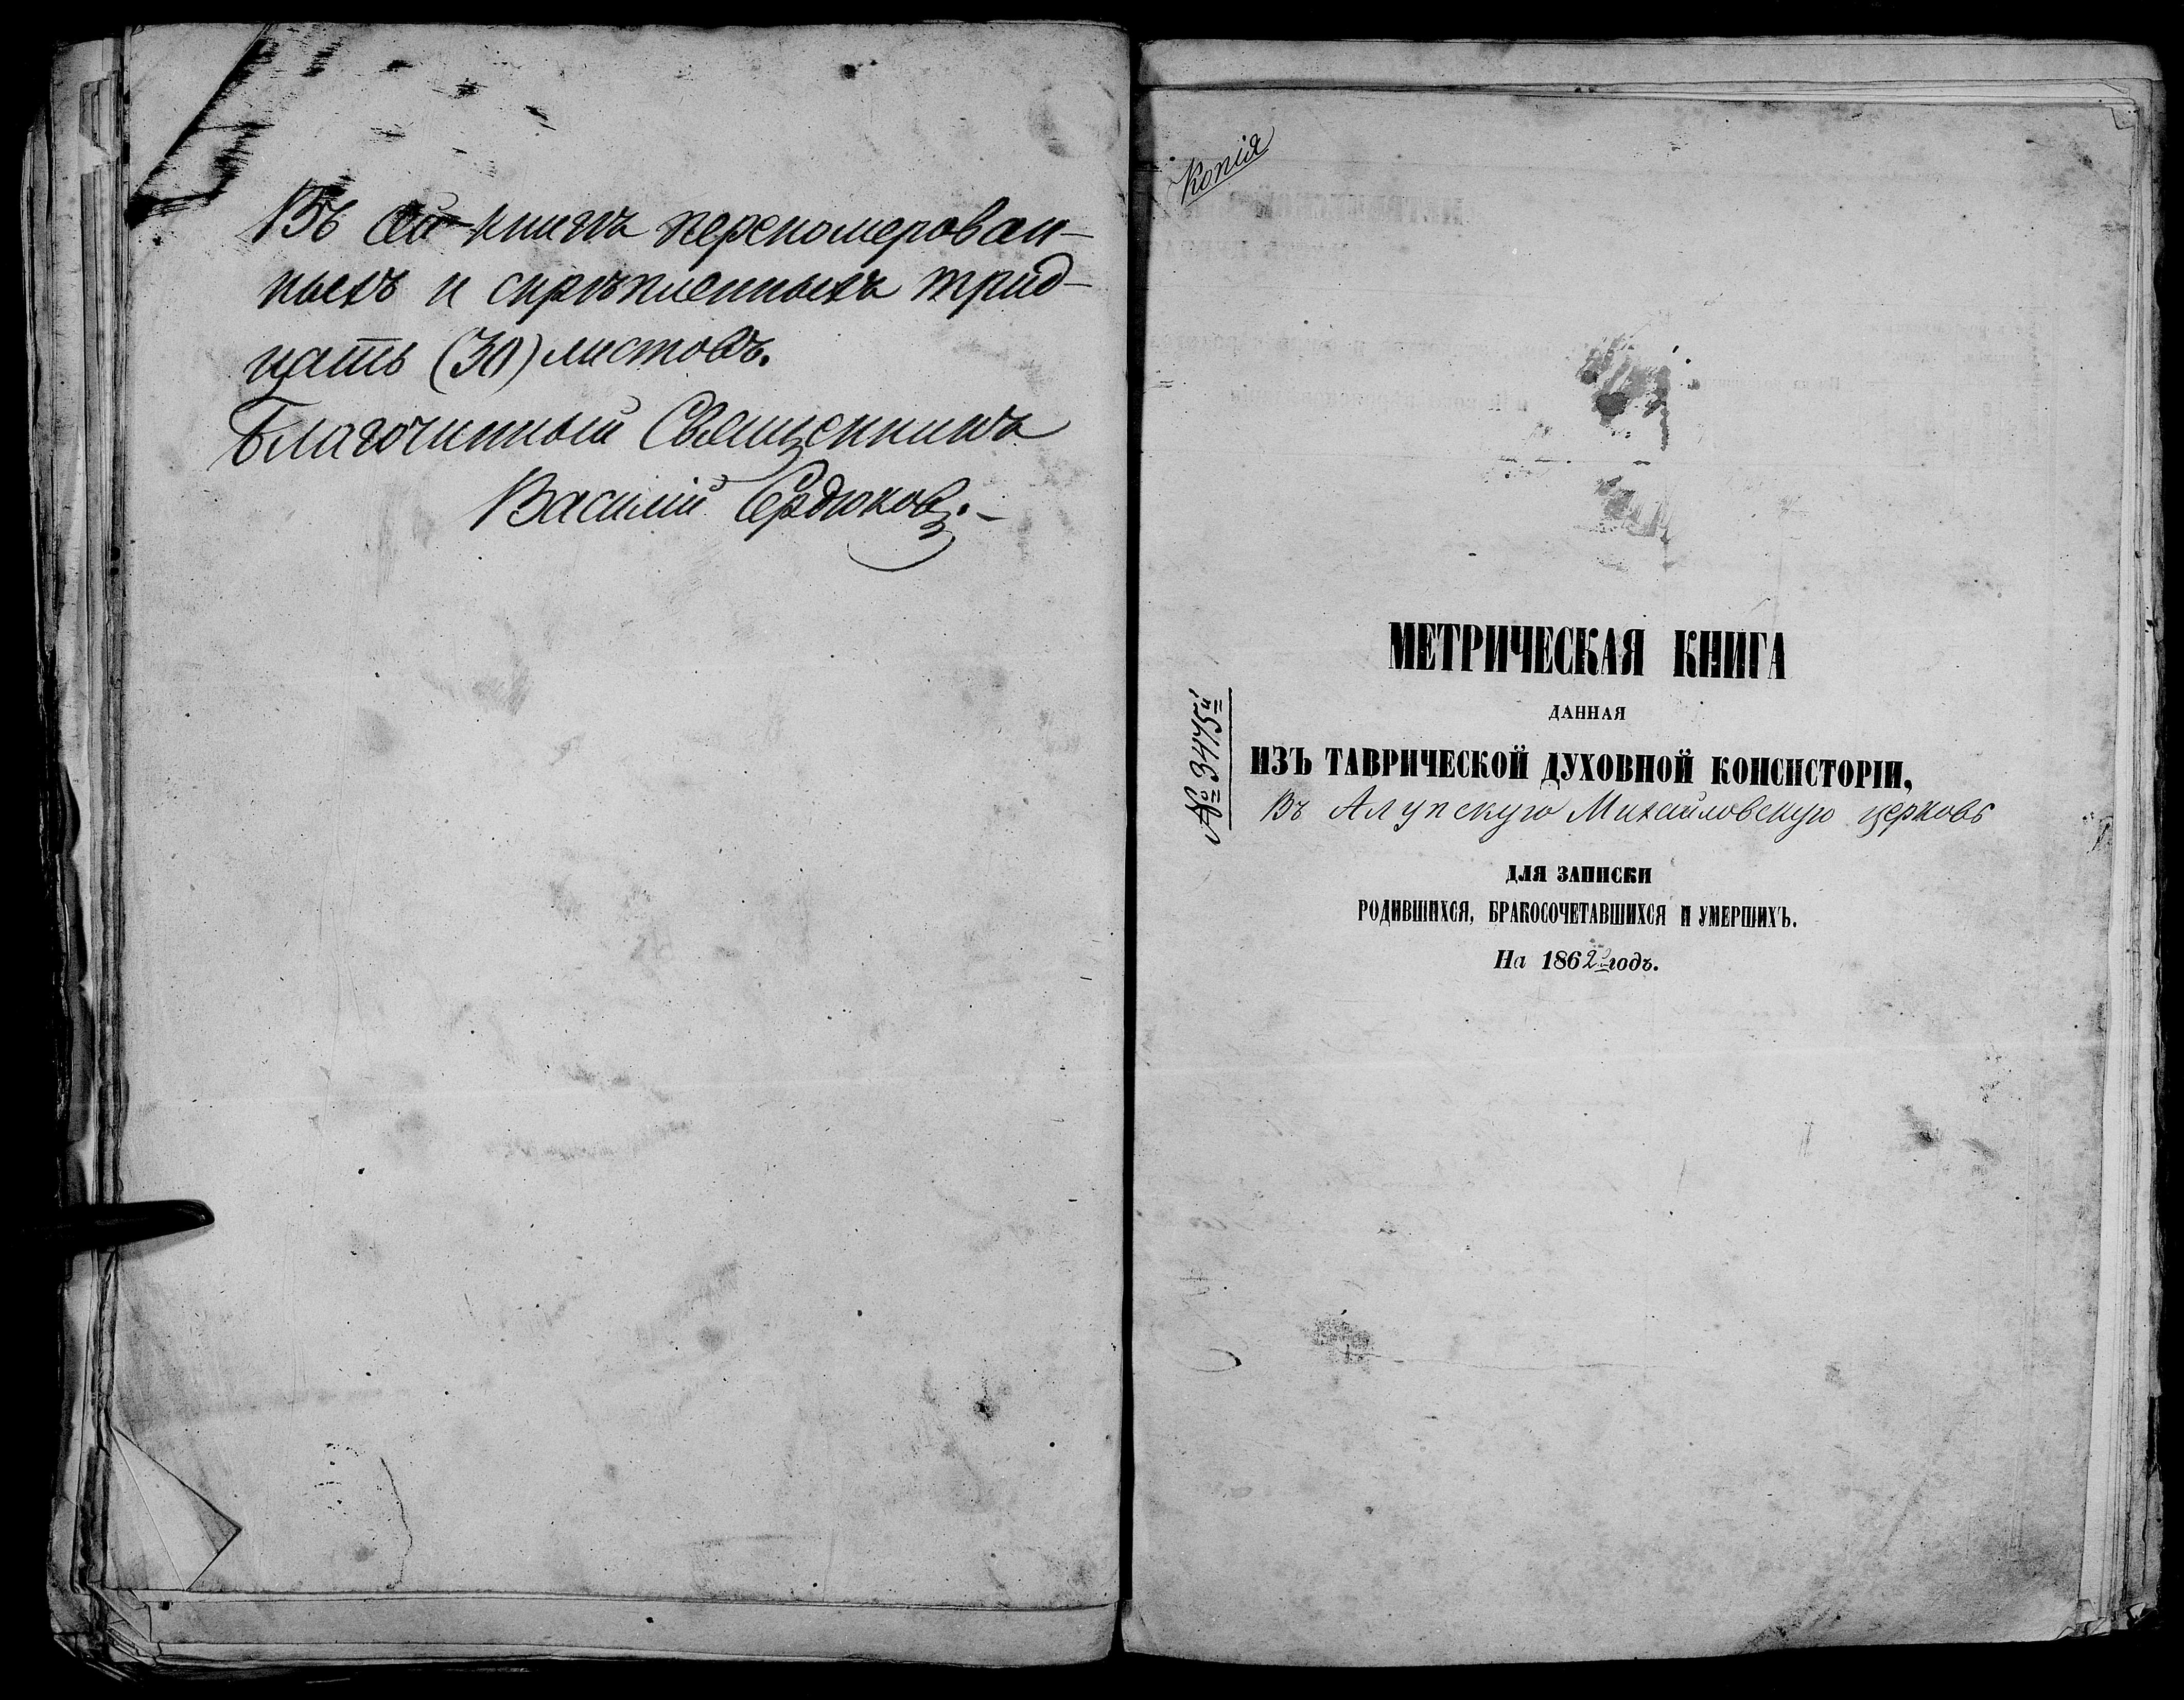 Въ сей книгѣ перепомерован-
ныхъ и скрѣпленныхъ трид-
цать (30) листовъ.
Благочинный Священникъ
Василій Сердюковъ.
Копія
№ 3475й
МЕТРИЧЕСКАЯ КНИГА
ДАННАЯ
ИЗЪ ТАВРИЧЕСКОЙ ДУХОВНОЙ КОНСИСТОРІИ,
Въ Алупскую Михайловскую церковь
ДЛЯ ЗАПИСКИ
РОДИВШИХСЯ, БРАКОСОЧЕТАВШИХСЯ И УМЕРШИХЪ.
На 1862й годъ.